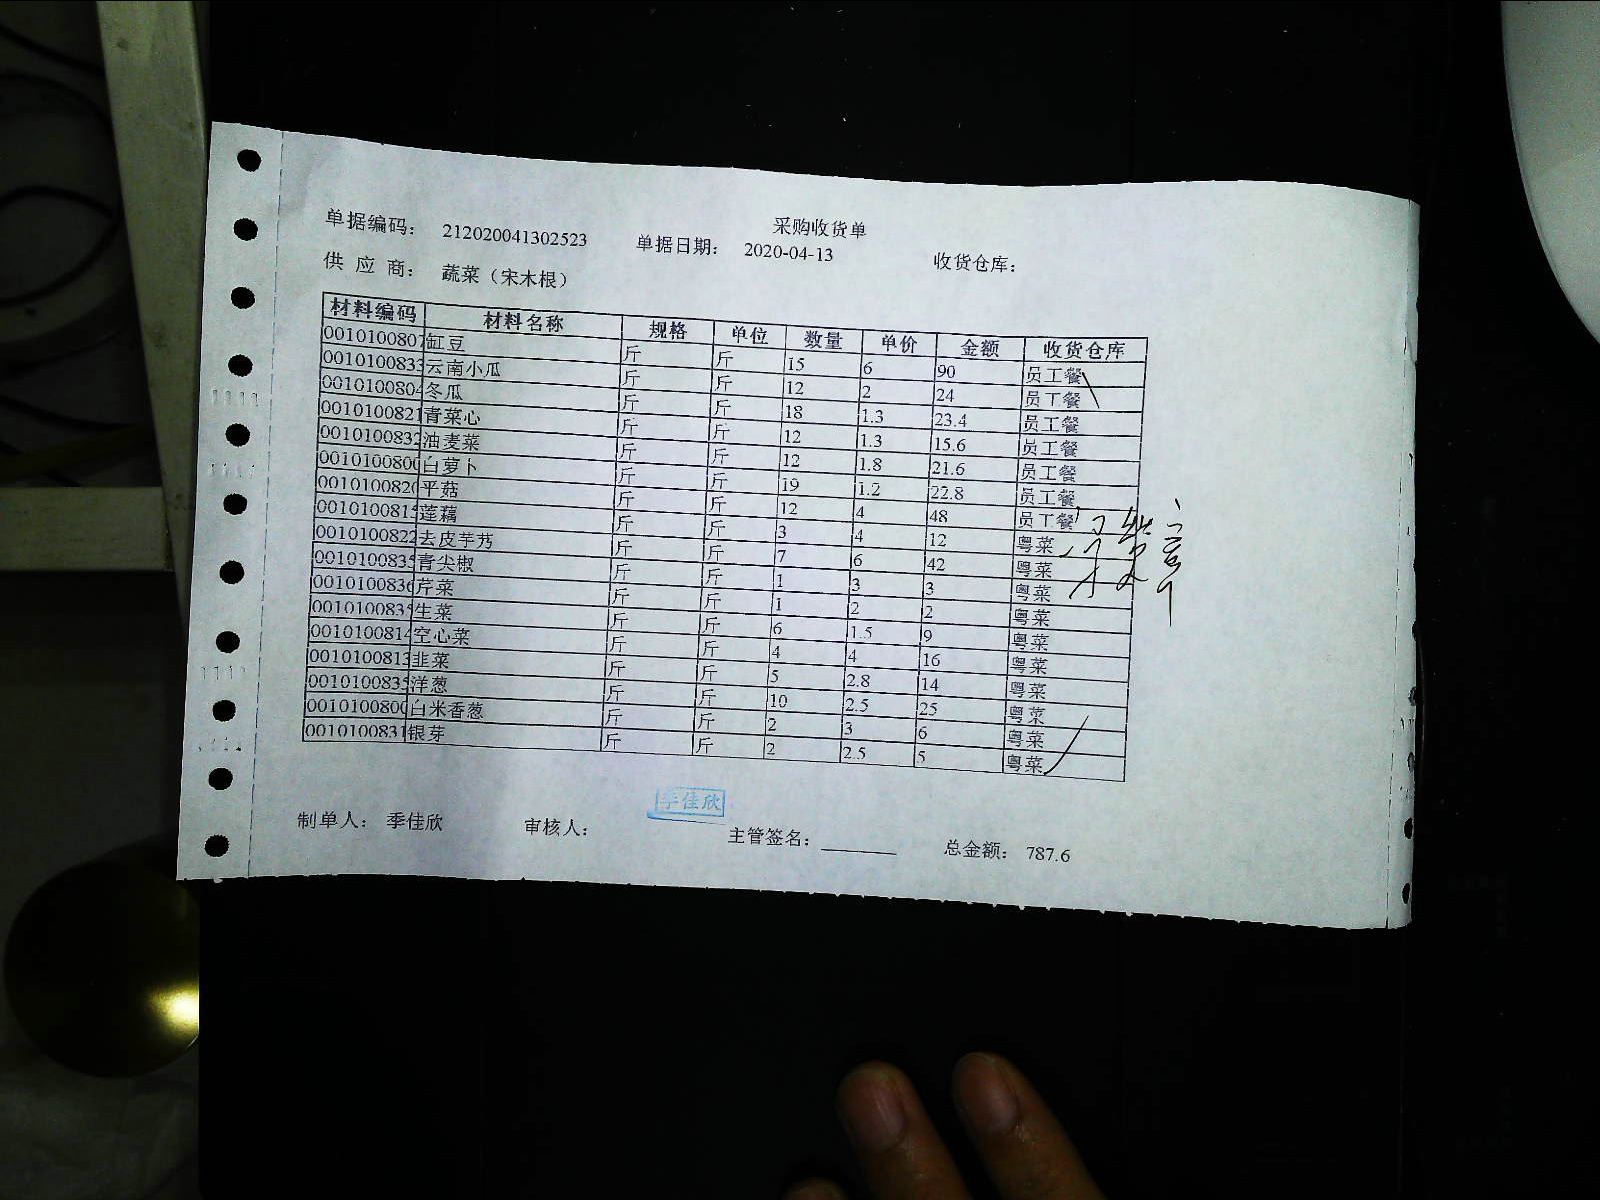 采购收货单
单据编码： 212020041302523 单据日期： 2020-04-13 收货仓库：
供 应 商： 蔬菜（宋木根）
材料编码 材料名称 规格 单位 数量 单价 金额 收货仓库
0010100807 缸豆 斤 斤 15 6 90 员工餐
0010100833 云南小瓜 斤 斤 12 2 24 员工餐
0010100804 冬瓜 斤 斤 18 1.3 23.4 员工餐
0010100821 青菜心 斤 斤 12 1.3 15.6 员工餐
0010100832 油麦菜 斤 斤 12 1.8 21.6 员工餐
0010100800 白萝卜 斤 斤 19 1.2 22.8 员工餐
0010100820 平菇 斤 斤 12 4 48 员工餐
001010081 莲藕 斤 斤 3 4 12 粤菜
0010100822 去皮芋艿 斤 斤 7 6 42 粤菜
001010083 青尖椒 斤 斤 1 3 3 粤菜
0010100836 芹菜 斤 斤 1 2 2 粤菜
001010083 生菜 斤 斤 6 1.5 9 粤菜
0010100814 空心菜 斤 斤 4 4 16 粤菜
0010100813 韭菜 斤 斤 5 2.8 14 粤菜
001010083 洋葱 斤 斤 10 2.5 25 粤菜
0010100800 白米香葱 斤 斤 2 3 6 粤菜
0010100831 银芽 斤 斤 2 2.5 5 粤菜
季佳欣
制单人： 季佳欣 审核人： 主管签名： 总金额： 787.6